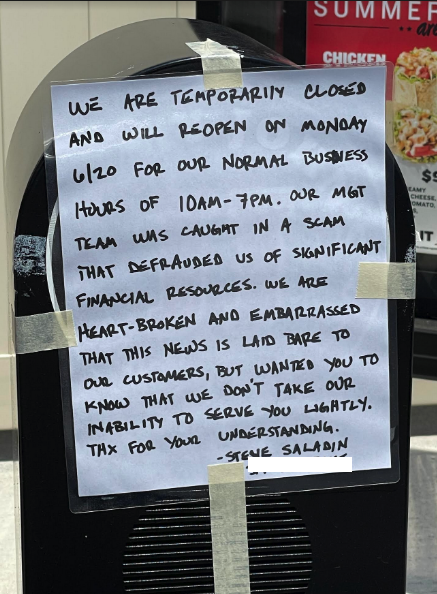 SUMMER
CHICKEN
WE ARE TEMPORARILY CLOSED
AND WILL REOPEN ON MONDAY
6/20 FOR OUR NORMAL BUSINESS
HOURS OF 10AM-7PM. OUR MGT
TEAM WAS CAUGHT IN A SCAM
THAT DEFRAUDED US OF SIGNIFICANT
FINANCIAL RESOURCES. WE ARE
HEART-BROKEN AND EMBARRASSED
THAT THIS NEWS IS LAID BARE TO
OUR CUSTOMERS, BUT WANTED YOU TO
KNOW THAT WE DON'T TAKE OUR
INABILITY TO SERVE YOU LIGHTLY.
THX FOR YOUR UNDERSTANDING.
-STEVE SALADIN
CHEESE,